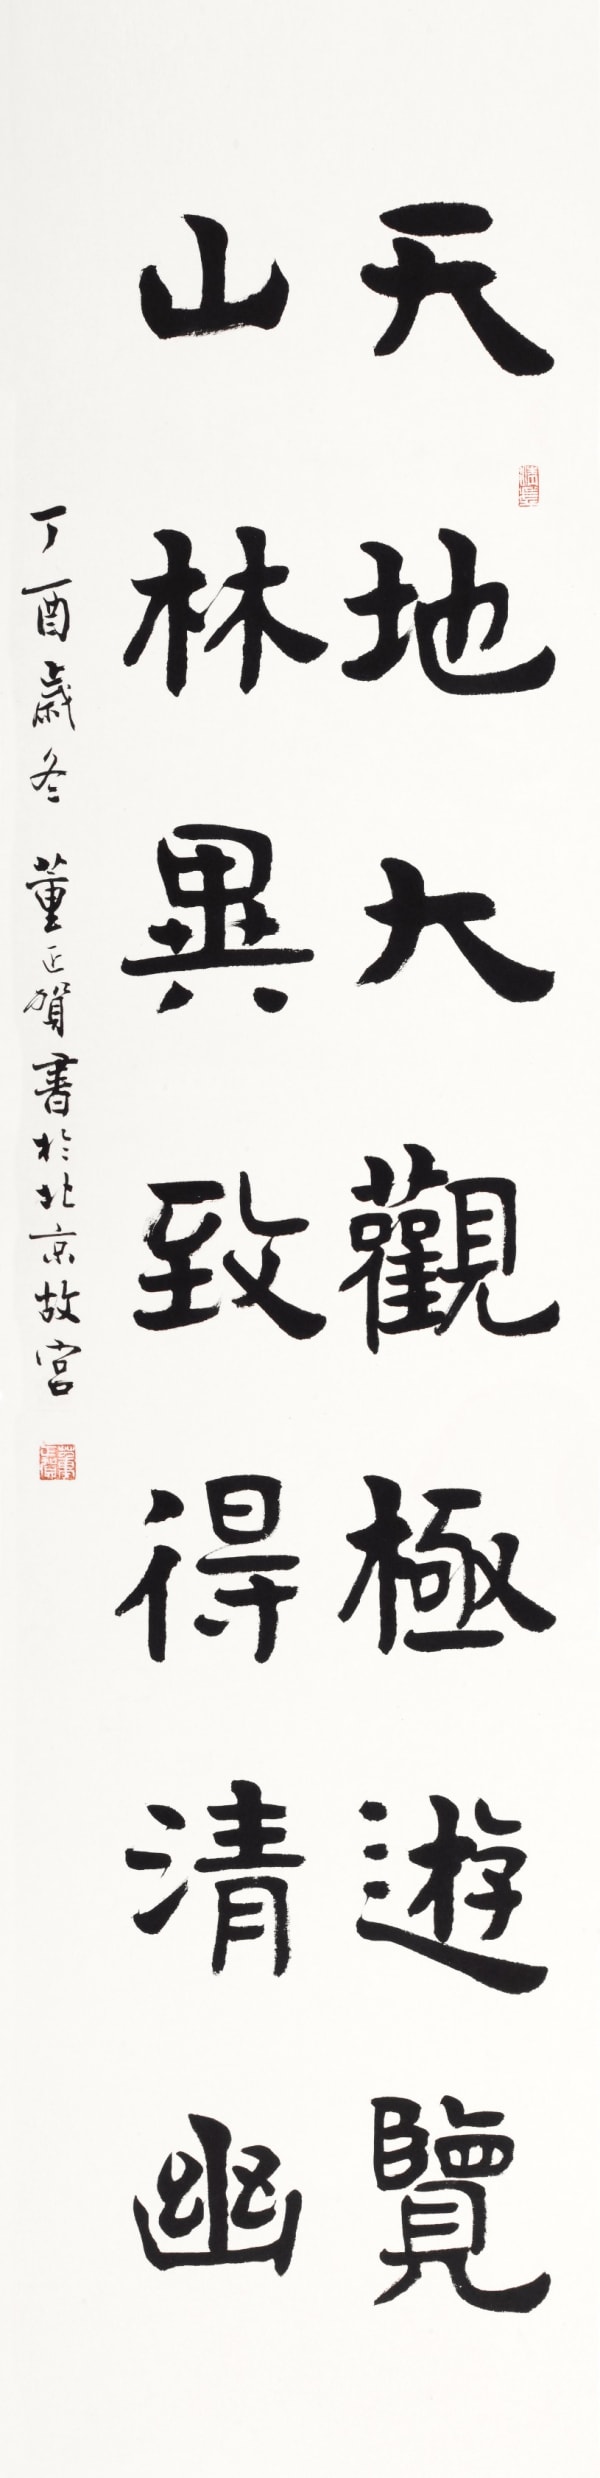 天地大觀極遊覽
山林異致得清幽
丁酉歲冬 董正賀書於北京故宮
董正賀